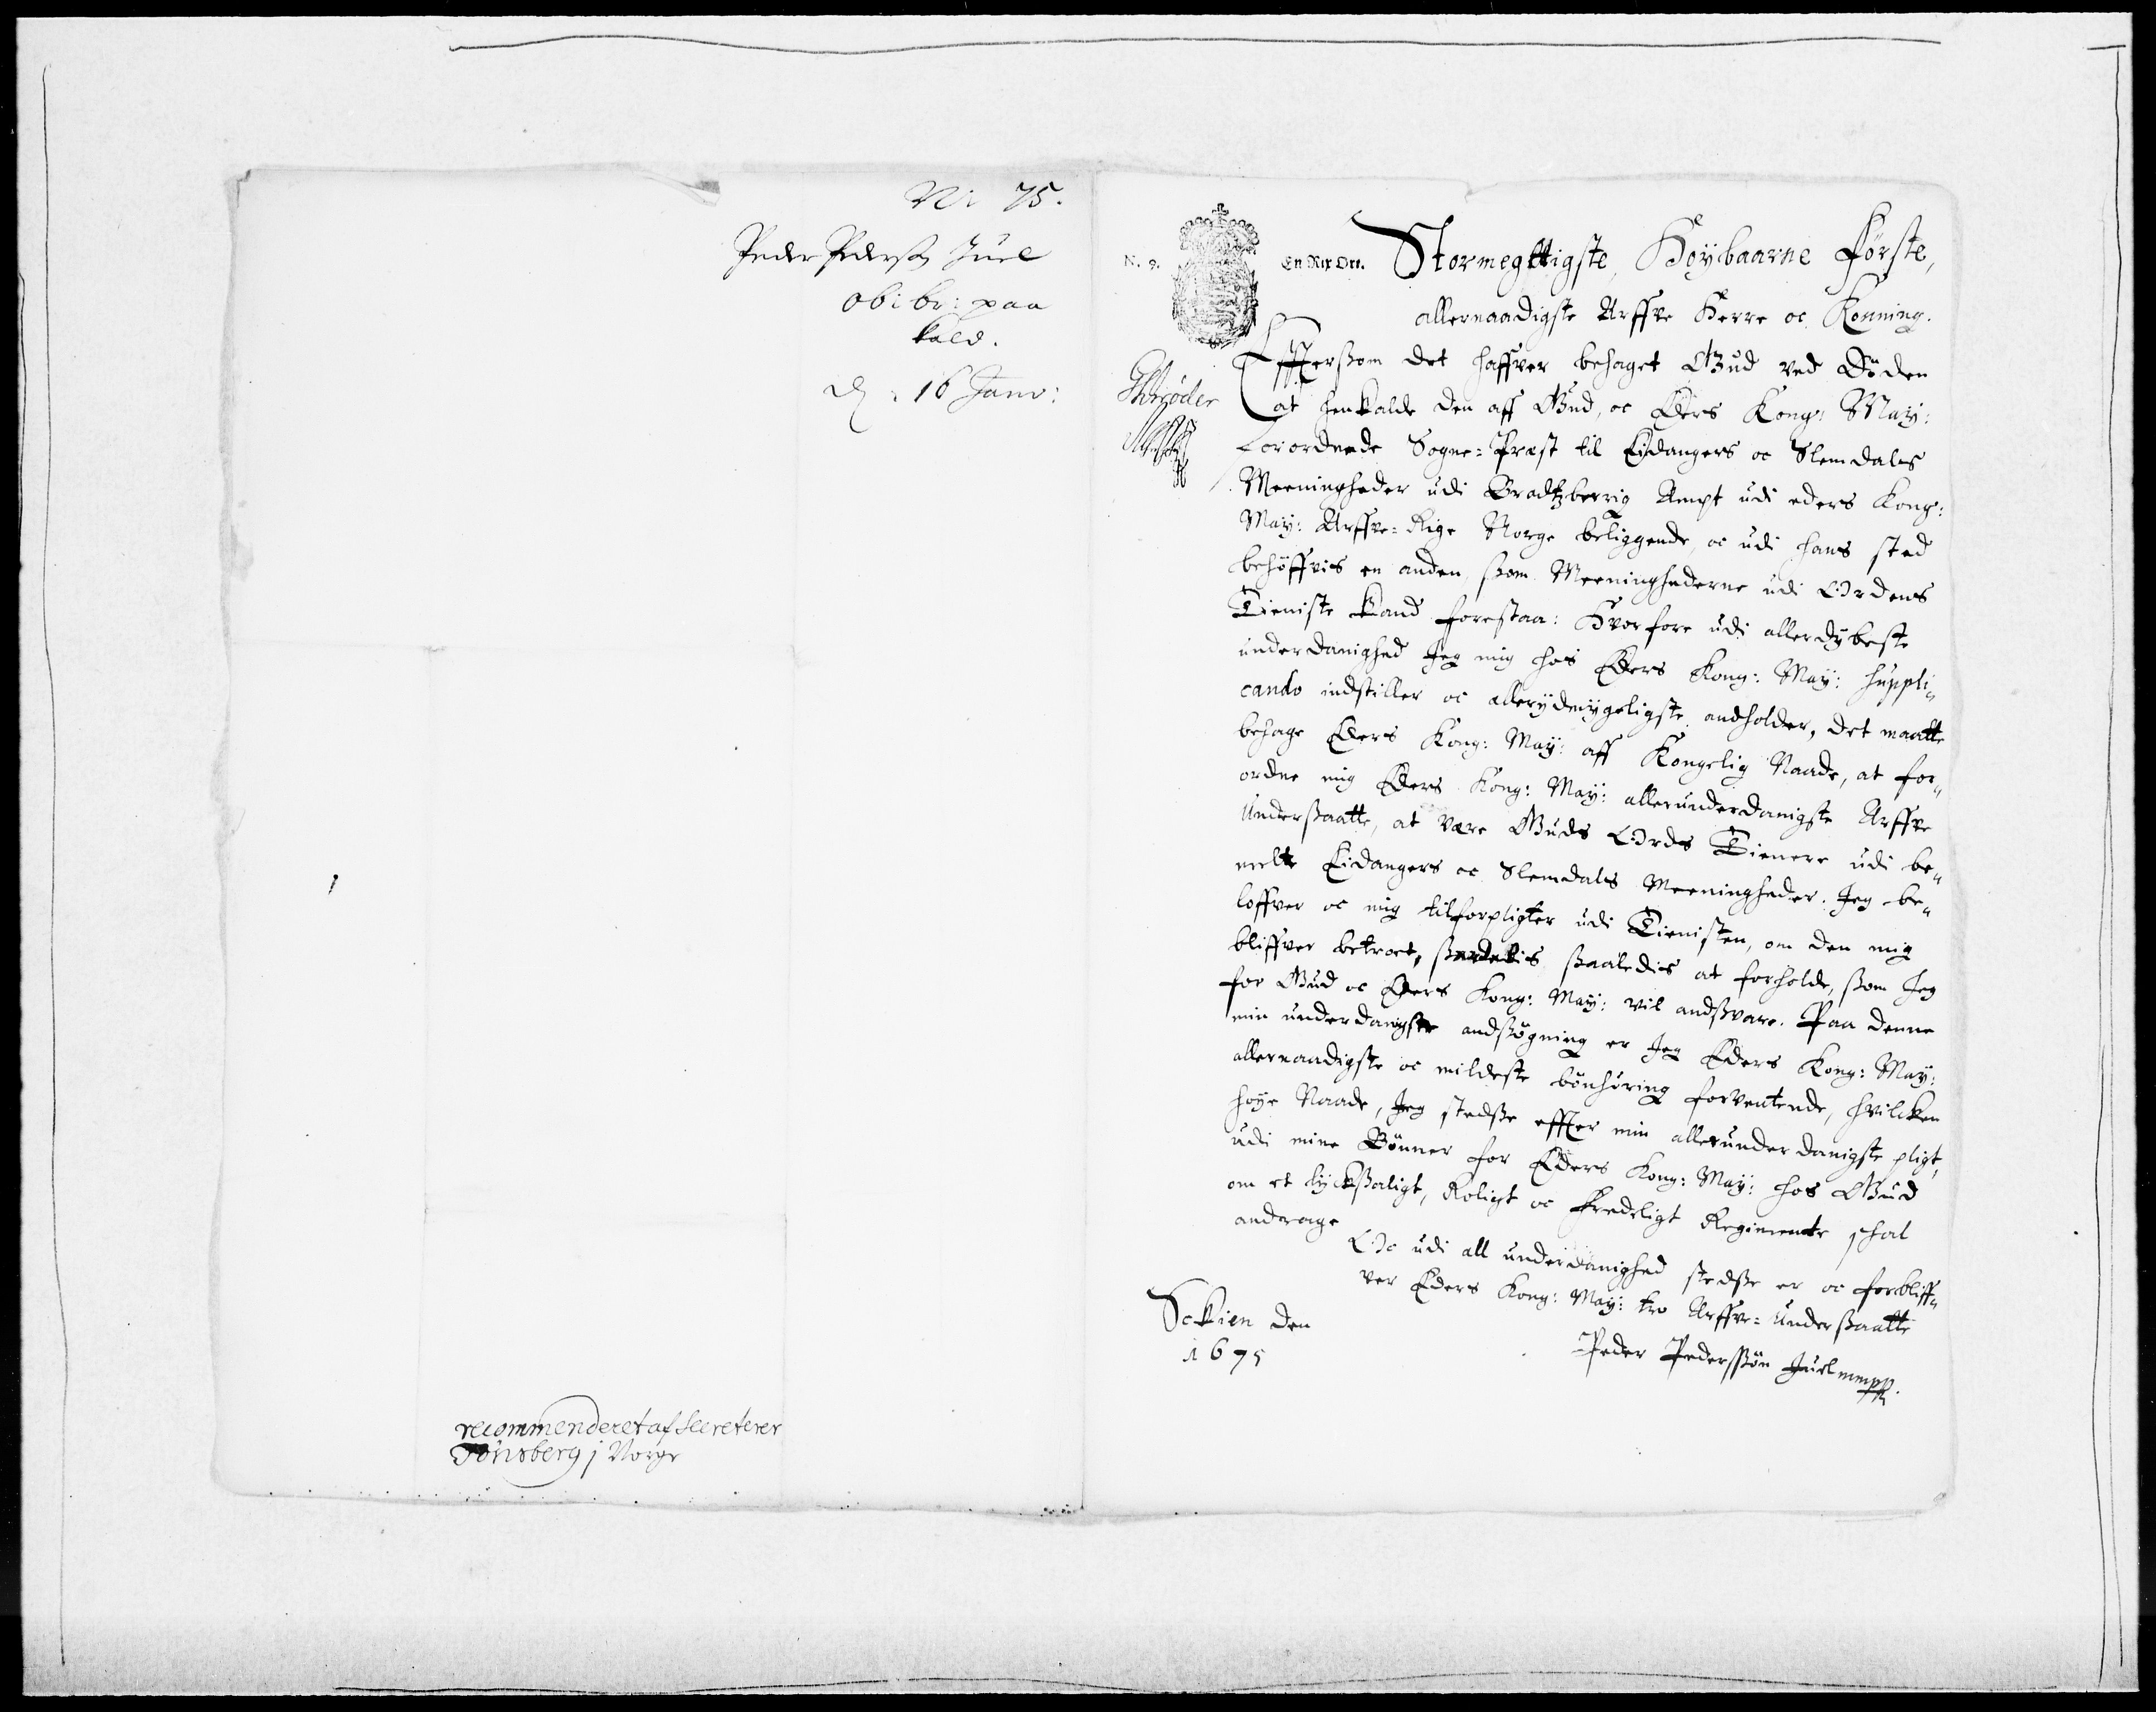 Nr 75.
Peder Pederss Juel
obr: br: paa
kald.
d: 16 Janv:
recommenderet af Secreterer
Tönsberg i Norge
N. 9.
En Rix Ort.
Stormegttigste, Höybaarne Förste,
allernaadigste Arffve Herre oc Konning.
Effterssom det haffver behaget Gud ved Döden
at henkalde den aff Gud, oc Eders Kong: May:
forordnede Sogne-Præst til Eidangers oc Slemdals
Meenigheder udi Bradtzberrig Ampt udi eders Kong:
May: Arffve-Rige Norge beliggende, oc udi hans sted
behöffvis en anden, ssom Meenighederne udi Ordens
Tieniste kand forestaa: Hvorfore udi allerdybeste
underdanighed Jeg mig hos Eders Kong: May: suppli„
cando indstiller oc allerydmygeligste andholder, det maatte
behage Eders Kong: May: aff Kongelig Naade, at for„
ordne mig Eders Kong: May: allerunderdanigste Arffve
Underssaatte, at være Guds Ords Tienere udi be„
melte Eidangers oc Slemdals Meenigheder. Jeg be„
loffver oc mig tilforpligter udi Tienisten, om den mig
bliffver betroet, ssaaledis at forholde, ssom Jeg
for Gud oc Eders Kong: May: vil andssvare. Paa denne
min underdanigste andssögning er Jeg Eders Kong: May:
allernaadigste oc mildeste bönhöring forventende, hvilcken
höye Naade, Jeg stedsse effter min allerunderdanigste pligt,
udi mine Bönner for Eders Kong: May: hos Gud
om et lyckssaligt, Roligt oc Fredeligt Regimente schal
andrage
Oc udi all underdanighed stedsse er oc forbliff„
ver Eders Kong: May: tro Arffve-Underssaatte
Sckien den
1675
Peder Pederssön Juel mmpp.